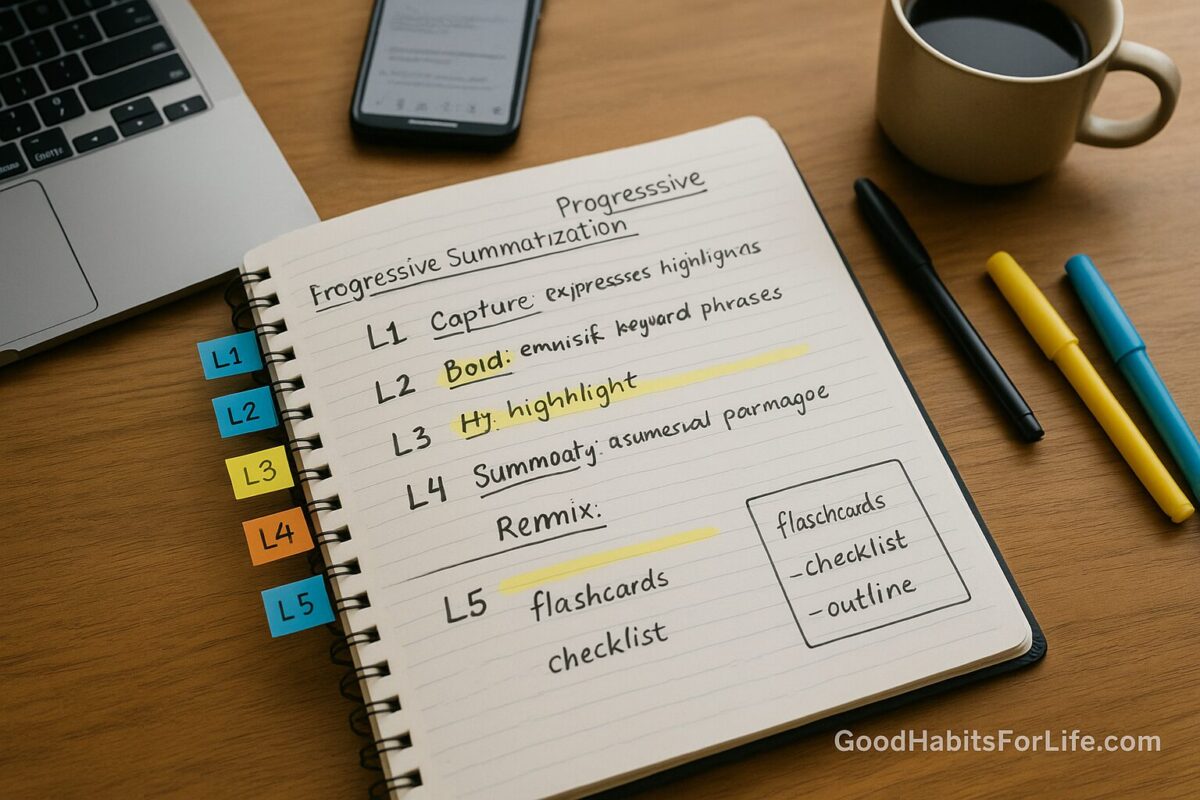 Progresssive
Frogressive Summatization
L1 Capture: exjpresses highlignis
L2 Bold: emnisif keyuard phrases
L3 Hy. highhlight
L4 Summoaty: asumesval parmagoe
Remix:
L5
flashcards
checklist
flaschcards
-checklist
-outline
L1
L2
L3
L4
L5
GoodHabitsForLife.com